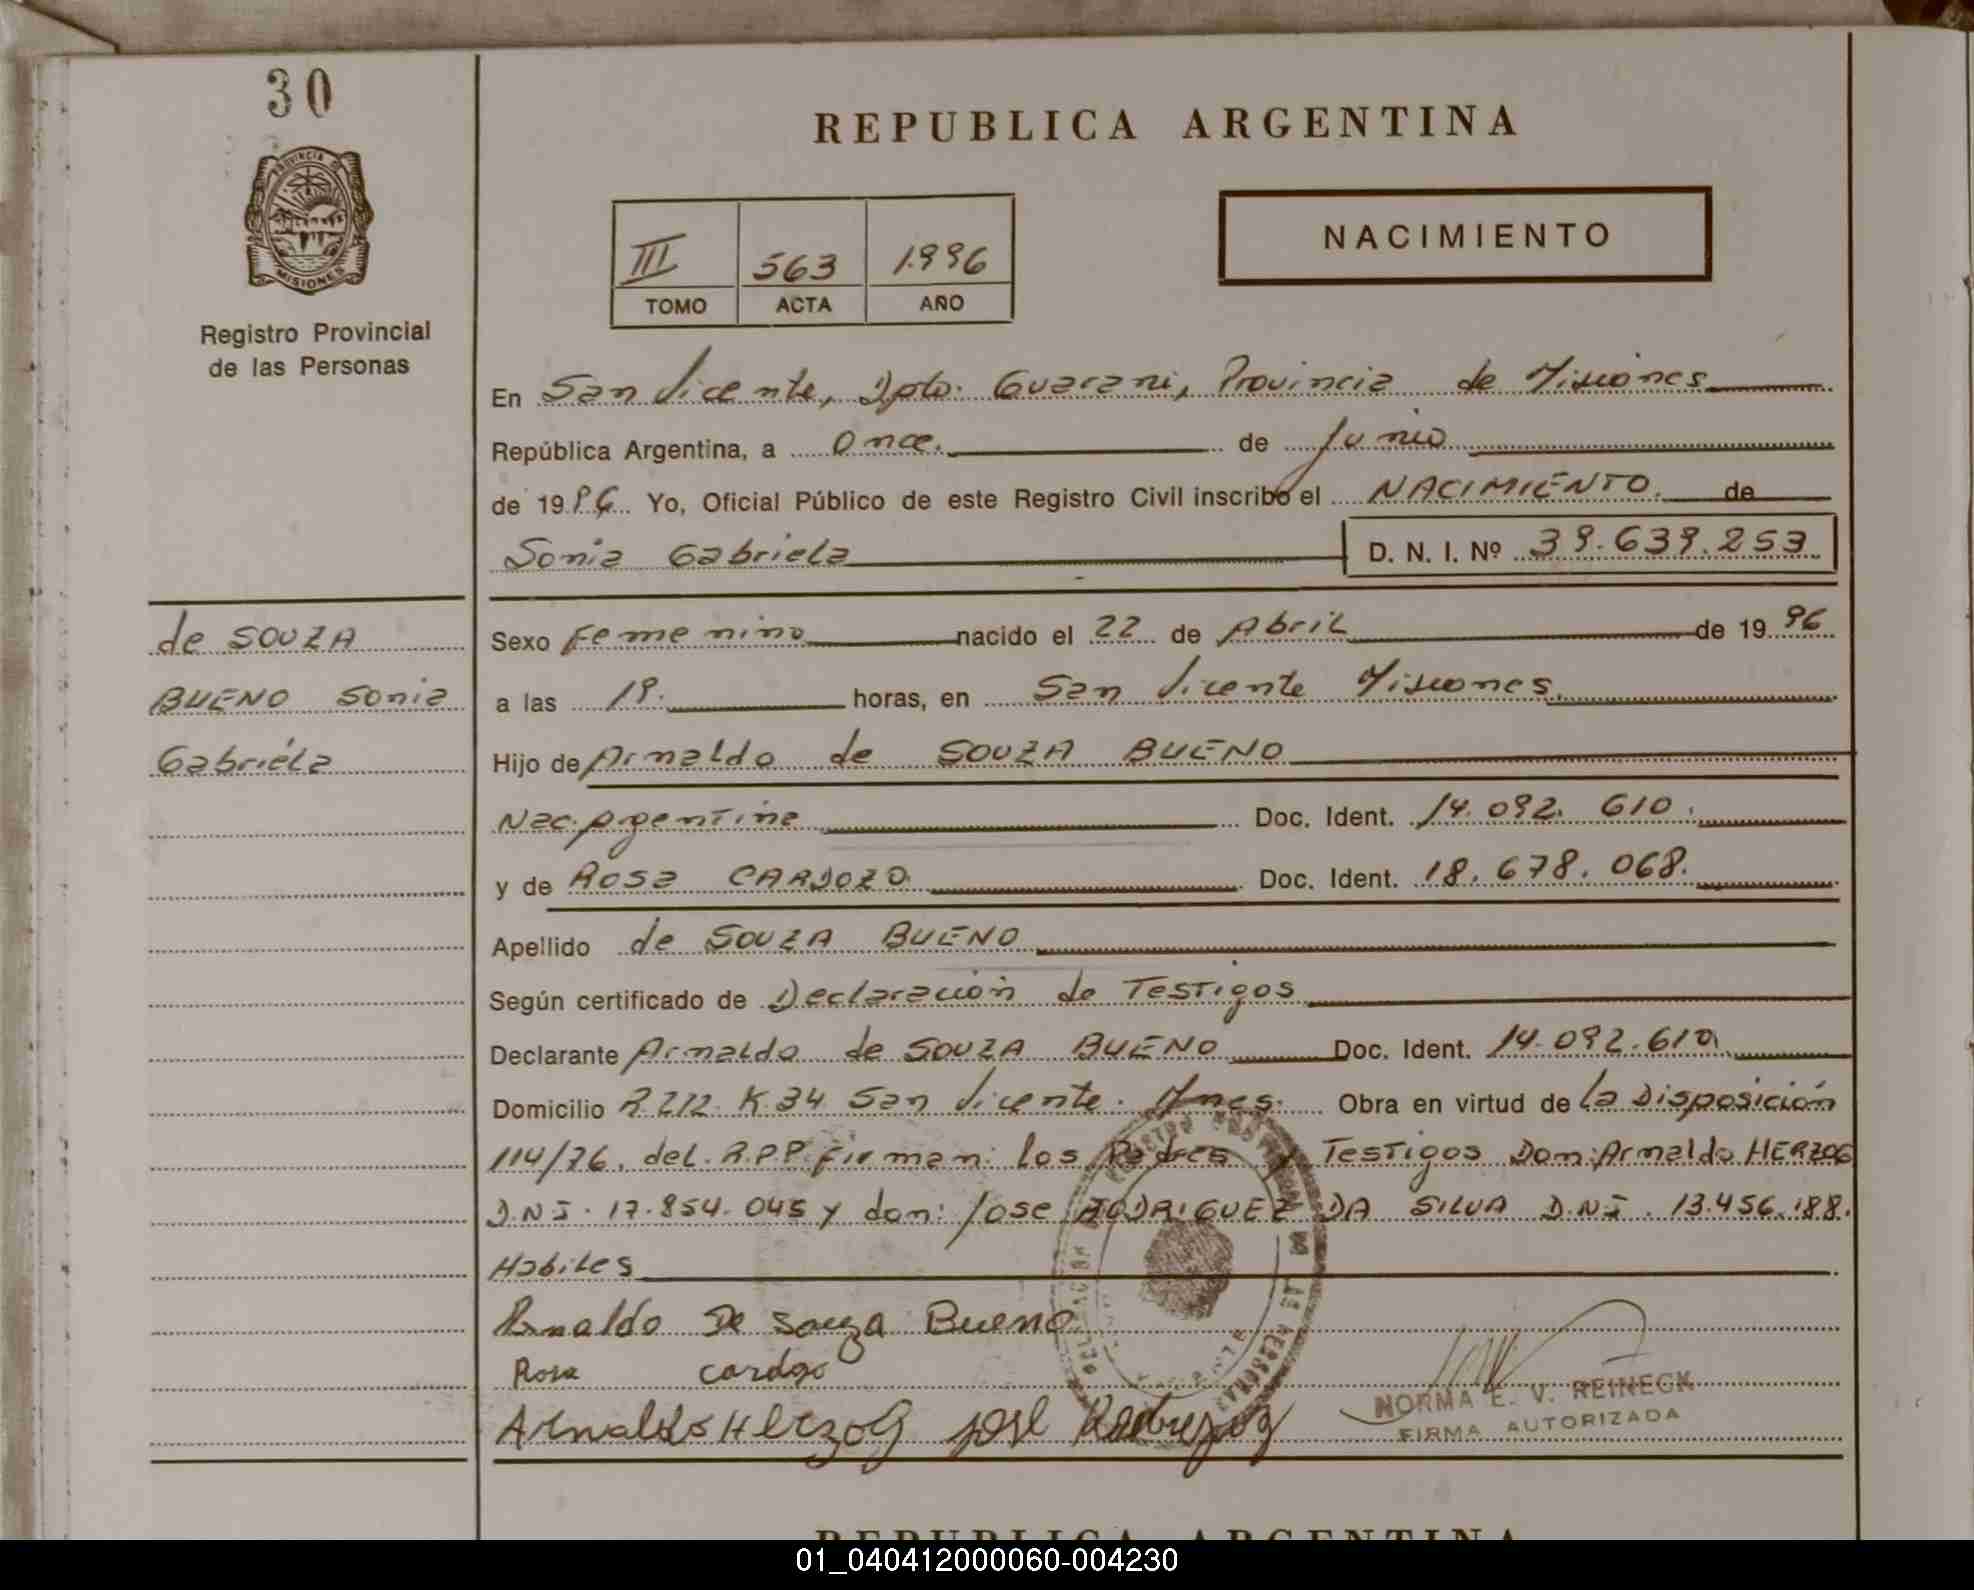 30
REPUBLICA ARGENTINA
PROVINCIA DE
MISIONES
Registro Provincial
de las Personas
NACIMIENTO
III 563 1.996
TOMO ACTA AÑO
En San Vicente, Dpto. Guarani, Provincia de Misiones
República Argentina, a once. de Junio
de 1996 Yo, Oficial Público de este Registro Civil inscribo el NACIMIENTO. de
Sonia Gabriela D. N. I. Nº 39.639.253
de SOUZA
BUENO Sonia
Gabriela
Sexo Femenino nacido el 22 de Abril de 1996
a las 19. horas, en San Vicente Misiones.
Hijo de Arnaldo de SOUZA BUENO
Nac. Argentina Doc. Ident. 14.092.610.
y de Rosa CARDOZO Doc. Ident. 18.678.068.
Apellido de SOUZA BUENO
Según certificado de Declaración de Testigos
Declarante Arnaldo de SOUZA BUENO Doc. Ident. 14.092.610.
Domicilio R 212 K 34 San Vicente. Mnes. Obra en virtud de la Disposición
114/76. del. R.P.P. Firman: los Padres y Testigos Don: Arnaldo HERZOG
D.N.I. 17.854.045 y don: Jose RODRIGUEZ DA SILVA D.N.I. 13.456.188.
Habiles
Arnaldo De Souza Bueno
Rosa Cardozo
Arnaldo Herzog José
NORMA E. V. REINECK
FIRMA AUTORIZADA
REPUBLICA ARGENTINA
01_040412000060-004230